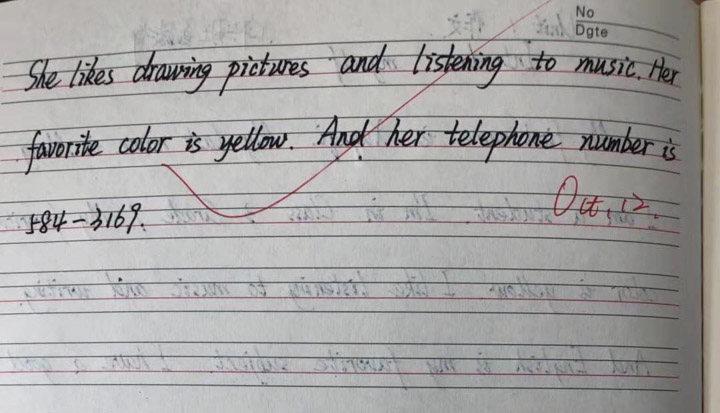 No
Date
She likes drawing pictures and listening to music. Her
favorite color is yellow. And her telephone number is
584-3169.
Oct, 12.